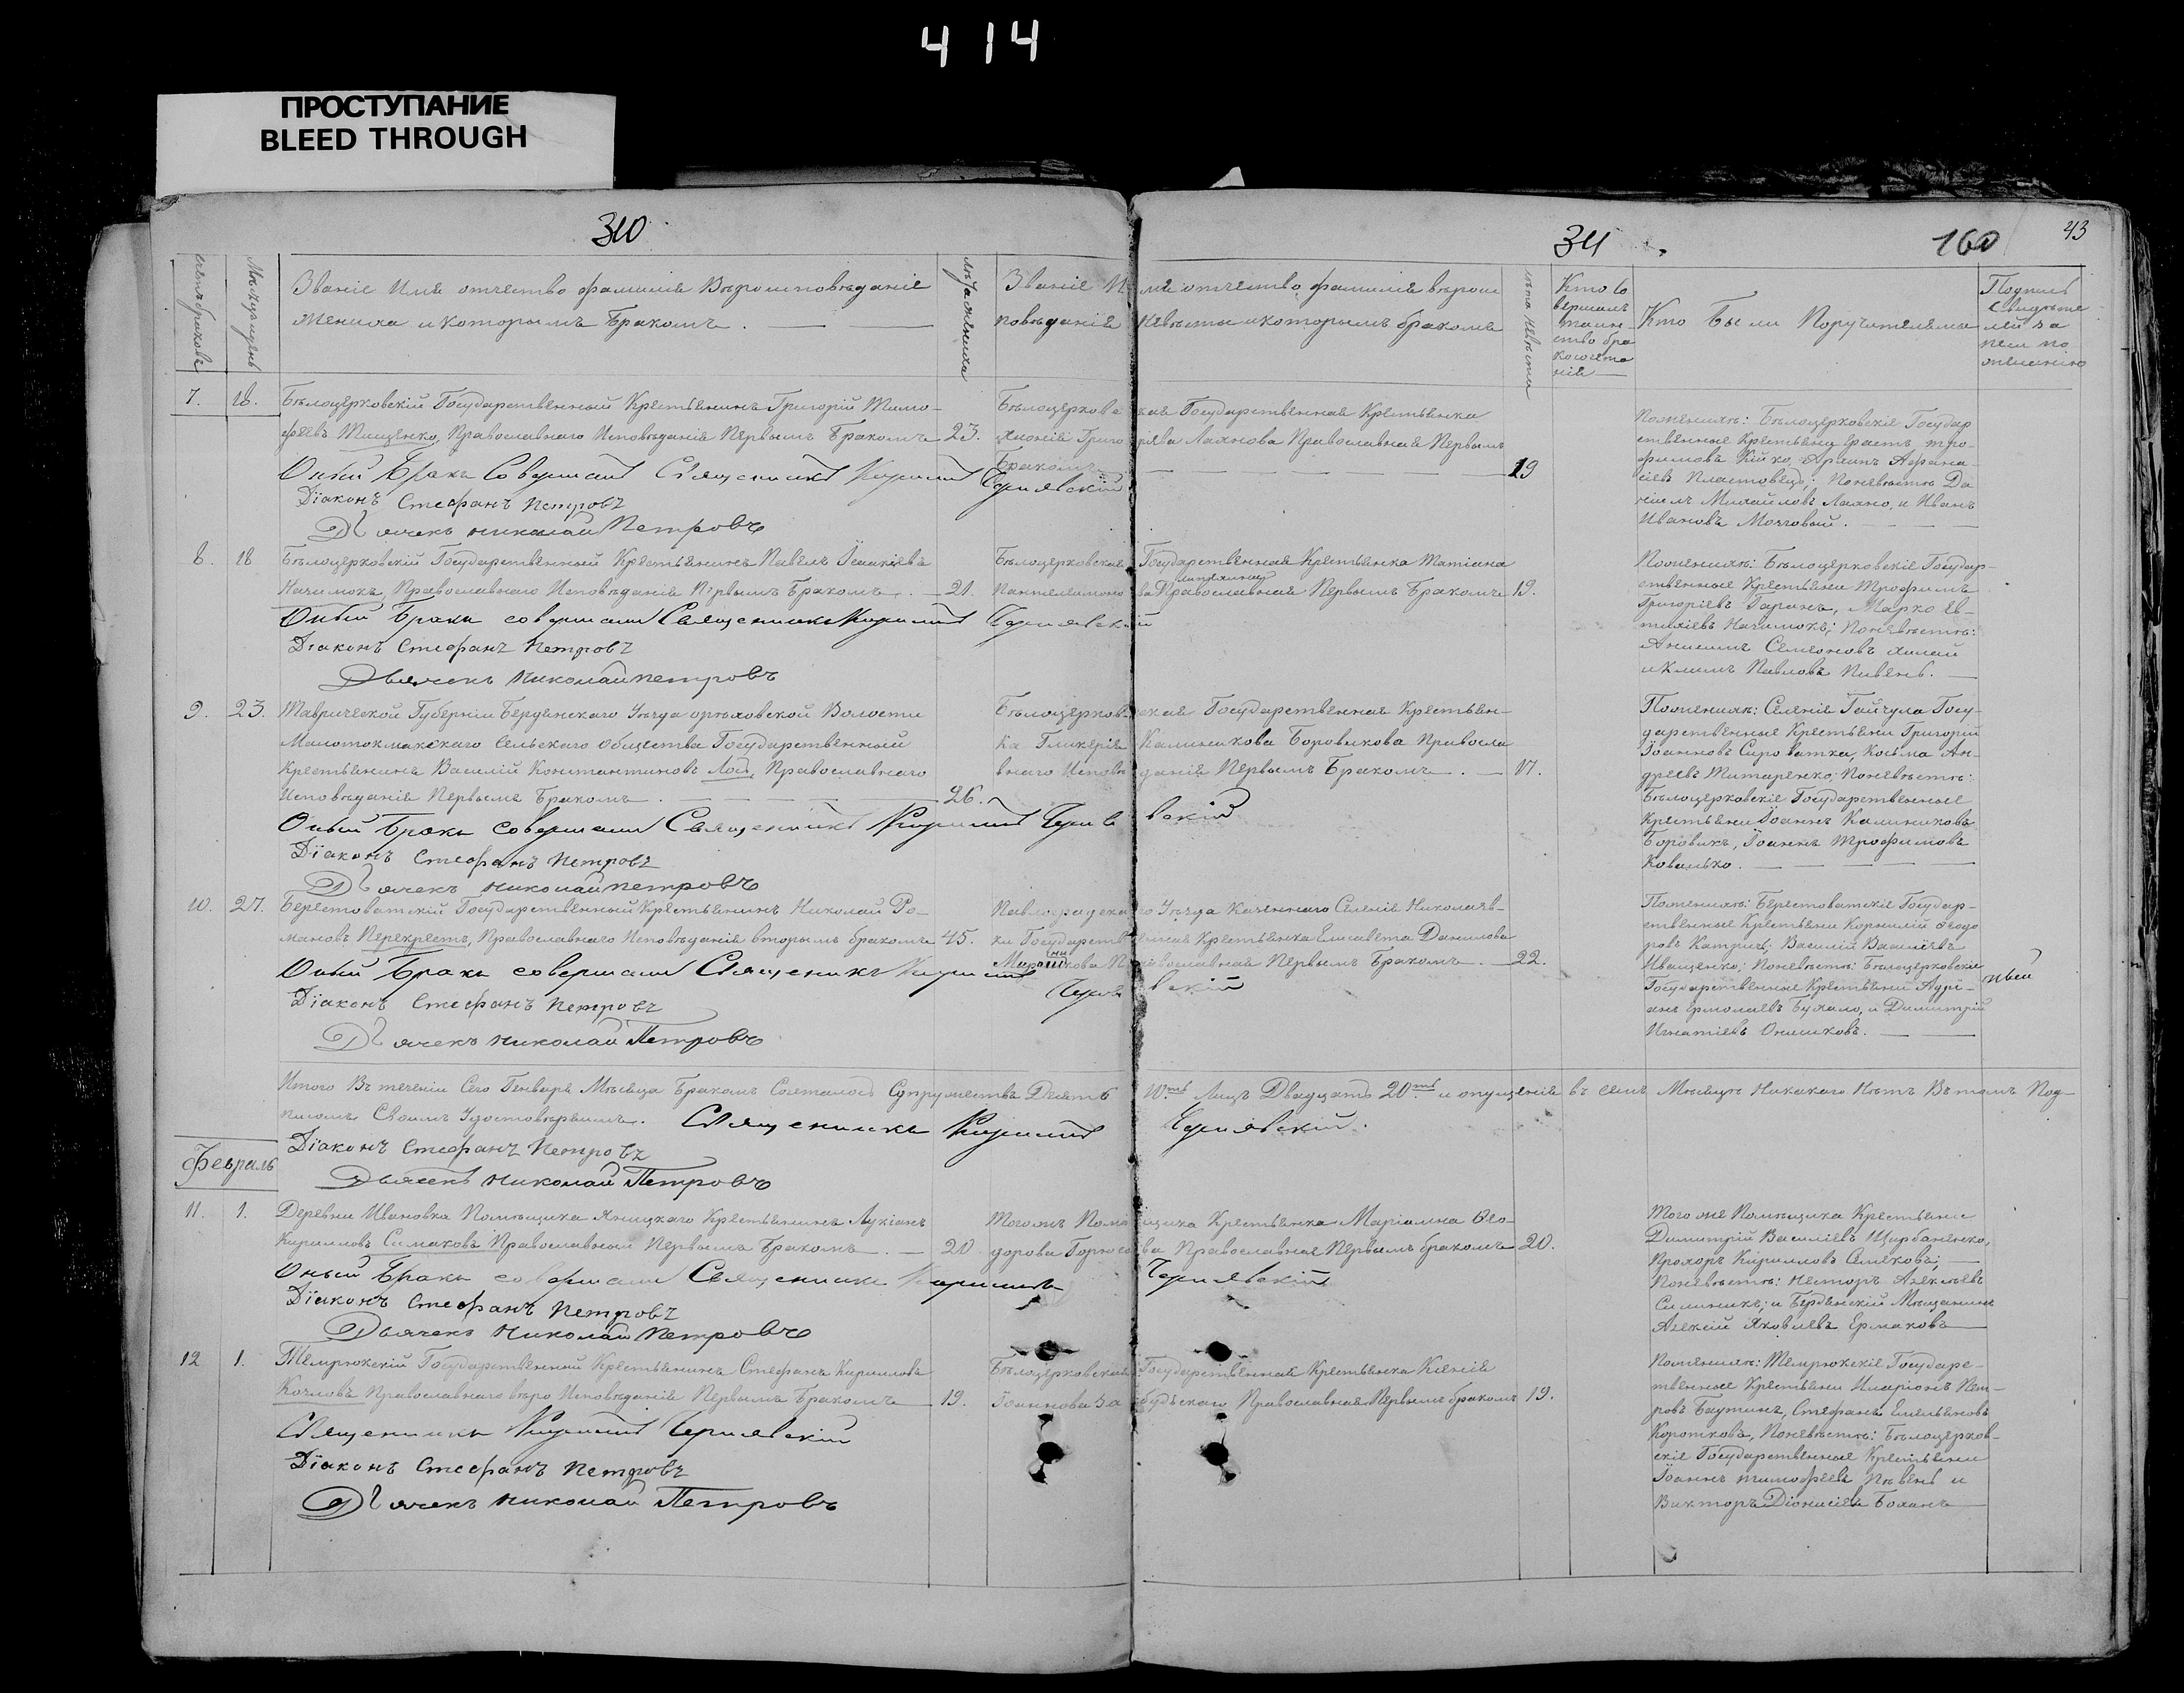 414
ПРОСТУПАНИЕ
BLEED THROUGH
310
311
160
43
счетъ браковъ
Мѣсяцъ и день
Званіе Имя отчество фамилія Вѣроисповѣданіе
Жениха и которымъ Бракомъ.
лѣта жениха
Званіе Имя отчество, фамилія вѣроис
повѣданіе Невѣсты и которымъ бракомъ
лѣта невѣсты
Кто со
вершалъ
таин-
ство бра
косочета
нія
Кто Были Поручители
Подпись
Свидѣте
лей за
писи по
желанію
7. 18. Бѣлоцерковскій Государственный Крестьянинъ Григорій Тимо-
фѣевъ Тищенко, Православнаго Исповѣданія Первымъ Бракомъ 23.
Оный Бракъ Совершалъ Священникъ Кирилъ Чернявскій
Діаконъ Стефанъ Петровъ
Дьячекъ Николай Петровъ
Бѣлоцерковская Государственная Крестьянка
Григорьева Ляхнова Православная Первымъ
Бракомъ 19
Пожених: Бѣлоцерковскіе Государ
ственные Крестьяне Тро-
фимовъ Кійко, Афана-
сіевъ Пластовецъ; Поневѣстѣ: Да
ніилъ Михайловъ Ляхно, и Иванъ
Ивановъ Мозговый.
8. 18 Бѣлоцерковскій Государственный Крестьянинъ Павелъ Ісаакіевъ
Начимокъ, Православнаго Исповѣданія Первымъ Бракомъ. 21.
Оный Бракъ совершалъ Священникъ Кирилъ Чернявскій
Діаконъ Стефанъ Петровъ
Дьячекъ Николай Петровъ
Бѣлоцерковская Государственная Крестьянка Татіана
Пантелимонова Православная Первымъ Бракомъ 19.
Пожених: Бѣлоцерковскіе Государ-
ственные Крестьяне Трофимъ
Григоріевъ Гаринъ, Марко Ев-
тихіевъ Начимокъ; Поневѣстѣ:
Семеоновъ
и Климъ Павловъ Пивень.
9. 23. Таврической Губерніи Бердянскаго Уѣзда Орѣховской Волости
Малотокмакскаго Сельскаго Общества Государственный
Крестьянинъ Василій Константиновъ Лось, Православнаго
Исповѣданія Первымъ Бракомъ. 26.
Оный Бракъ совершалъ Священникъ Кирилъ Чернявскій
Діаконъ Стефанъ Петровъ
Дьячекъ Николай Петровъ
Бѣлоцерковская Государственная Крестьян-
ка Гликерія Калиникова Боровикова Правосла
внаго Исповѣданія Первымъ Бракомъ. 17.
Пожених: Селенія Гайчула Госу-
дарственные Крестьяне Григорій
Іоанновъ Сироватка, Косьма Ан-
дреевъ Титаренко; Поневѣстѣ:
Бѣлоцерковскіе Государственные
Крестьяне Іоаннъ Калиниковъ
Боровикъ, Іоаннъ Трофимовъ
Ковалько.
10. 27. Берестоватскій Государственный Крестьянинъ Николай Ро-
мановъ Перехрестъ, Православнаго Исповѣданія вторымъ бракомъ 45.
Оный Бракъ совершалъ Священникъ Кирилъ Чернявскій
Діаконъ Стефанъ Петровъ
Дьячекъ Николай Петровъ
Павлоградскаго Уѣзда Казеннаго Селенія Николаев-
ки Государственная Крестьянка Елисавета Данилова
Православная Первымъ Бракомъ. 22.
Пожених: Берестоватскіе Государ-
ственные Крестьяне Корнилій Ѳеодо
ровъ Катричь: Василій Василіевъ
Иващенко; Поневѣстѣ: Бѣлоцерковскіе
Государственные Крестьяне Адрі-
анъ Ермолаевъ Бухало, и Димитрій
Игнатіевъ Ониликовъ.
Итого Въ теченіи Сего Генваря Мѣсяца Бракомъ Сочталось Супружества Десять 10ть Лицъ Двадцать 20ть и опущенія въ семъ Мѣсяцѣ Никакаго Нѣтъ Въ томъ Под-
писомъ Своимъ Удостовѣряемъ. Священникъ Кирилъ Чернявскій.
Діаконъ Стефанъ Петровъ
Дьячекъ Николай Петровъ
Февраль
11. 1. Деревни Ивановка Помѣщика Яницкаго Крестьянинъ Лукіанъ
Кирилловъ Симаковъ Православный Первымъ Бракомъ. 20.
Оный Бракъ совершалъ Священникъ Кирилъ Чернявскій
Діаконъ Стефанъ Петровъ
Дьячекъ Николай Петровъ
Тогожъ Помѣщика Крестьянка Маріамна Ѳео-
дорова Православная Первымъ бракомъ 20.
Того же Помѣщика Крестьяне
Димитрій Василіевъ Щербаненко,
Прохоръ Кирилловъ Семяковъ;
Поневѣстѣ: Несторъ Алексѣевъ
Силиникъ; и Бердянскій Мѣщанинъ
Алексій Яковлевъ Ермаковъ
12 1. Темрюкскій Государственный Крестьянинъ Стефанъ Кирилловъ
Козловъ Православнаго вѣро Исповѣданія Первымъ Бракомъ 19.
Священникъ Кирилъ Чернявскій
Діаконъ Стефанъ Петровъ
Дьячекъ Николай Петровъ
Бѣлоцерковская Государственная Крестьянка Ксенія
Іоаннова Православная Первымъ бракомъ 19.
Пожених: Темрюкскіе Государс-
твенные Крестьяне Иларіонъ Пет-
ровъ Баутинъ, Стефанъ Емельяновъ
Коротковъ, Поневѣстѣ: Бѣлоцерков-
скіе Государственные Крестьяне
Іоаннъ Тимофеевъ Пѣвень и
Викторъ Діонисіевъ Боханъ